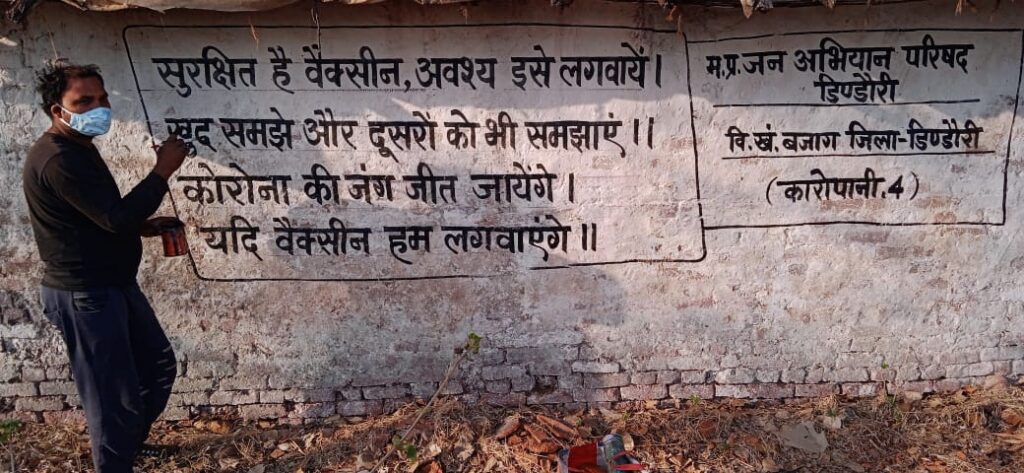 सुरक्षित है वैक्सीन, अवश्य इसे लगवायें।
खुद समझे और दूसरों को भी समझाएं।।
कोरोना की जंग जीत जायेंगे।
यदि वैक्सीन हम लगवाएंगे॥
म.प्र. जन अभियान परिषद
डिण्डौरी
वि.खं. बजाग जिला-डिण्डौरी
(कारोपानी.4)